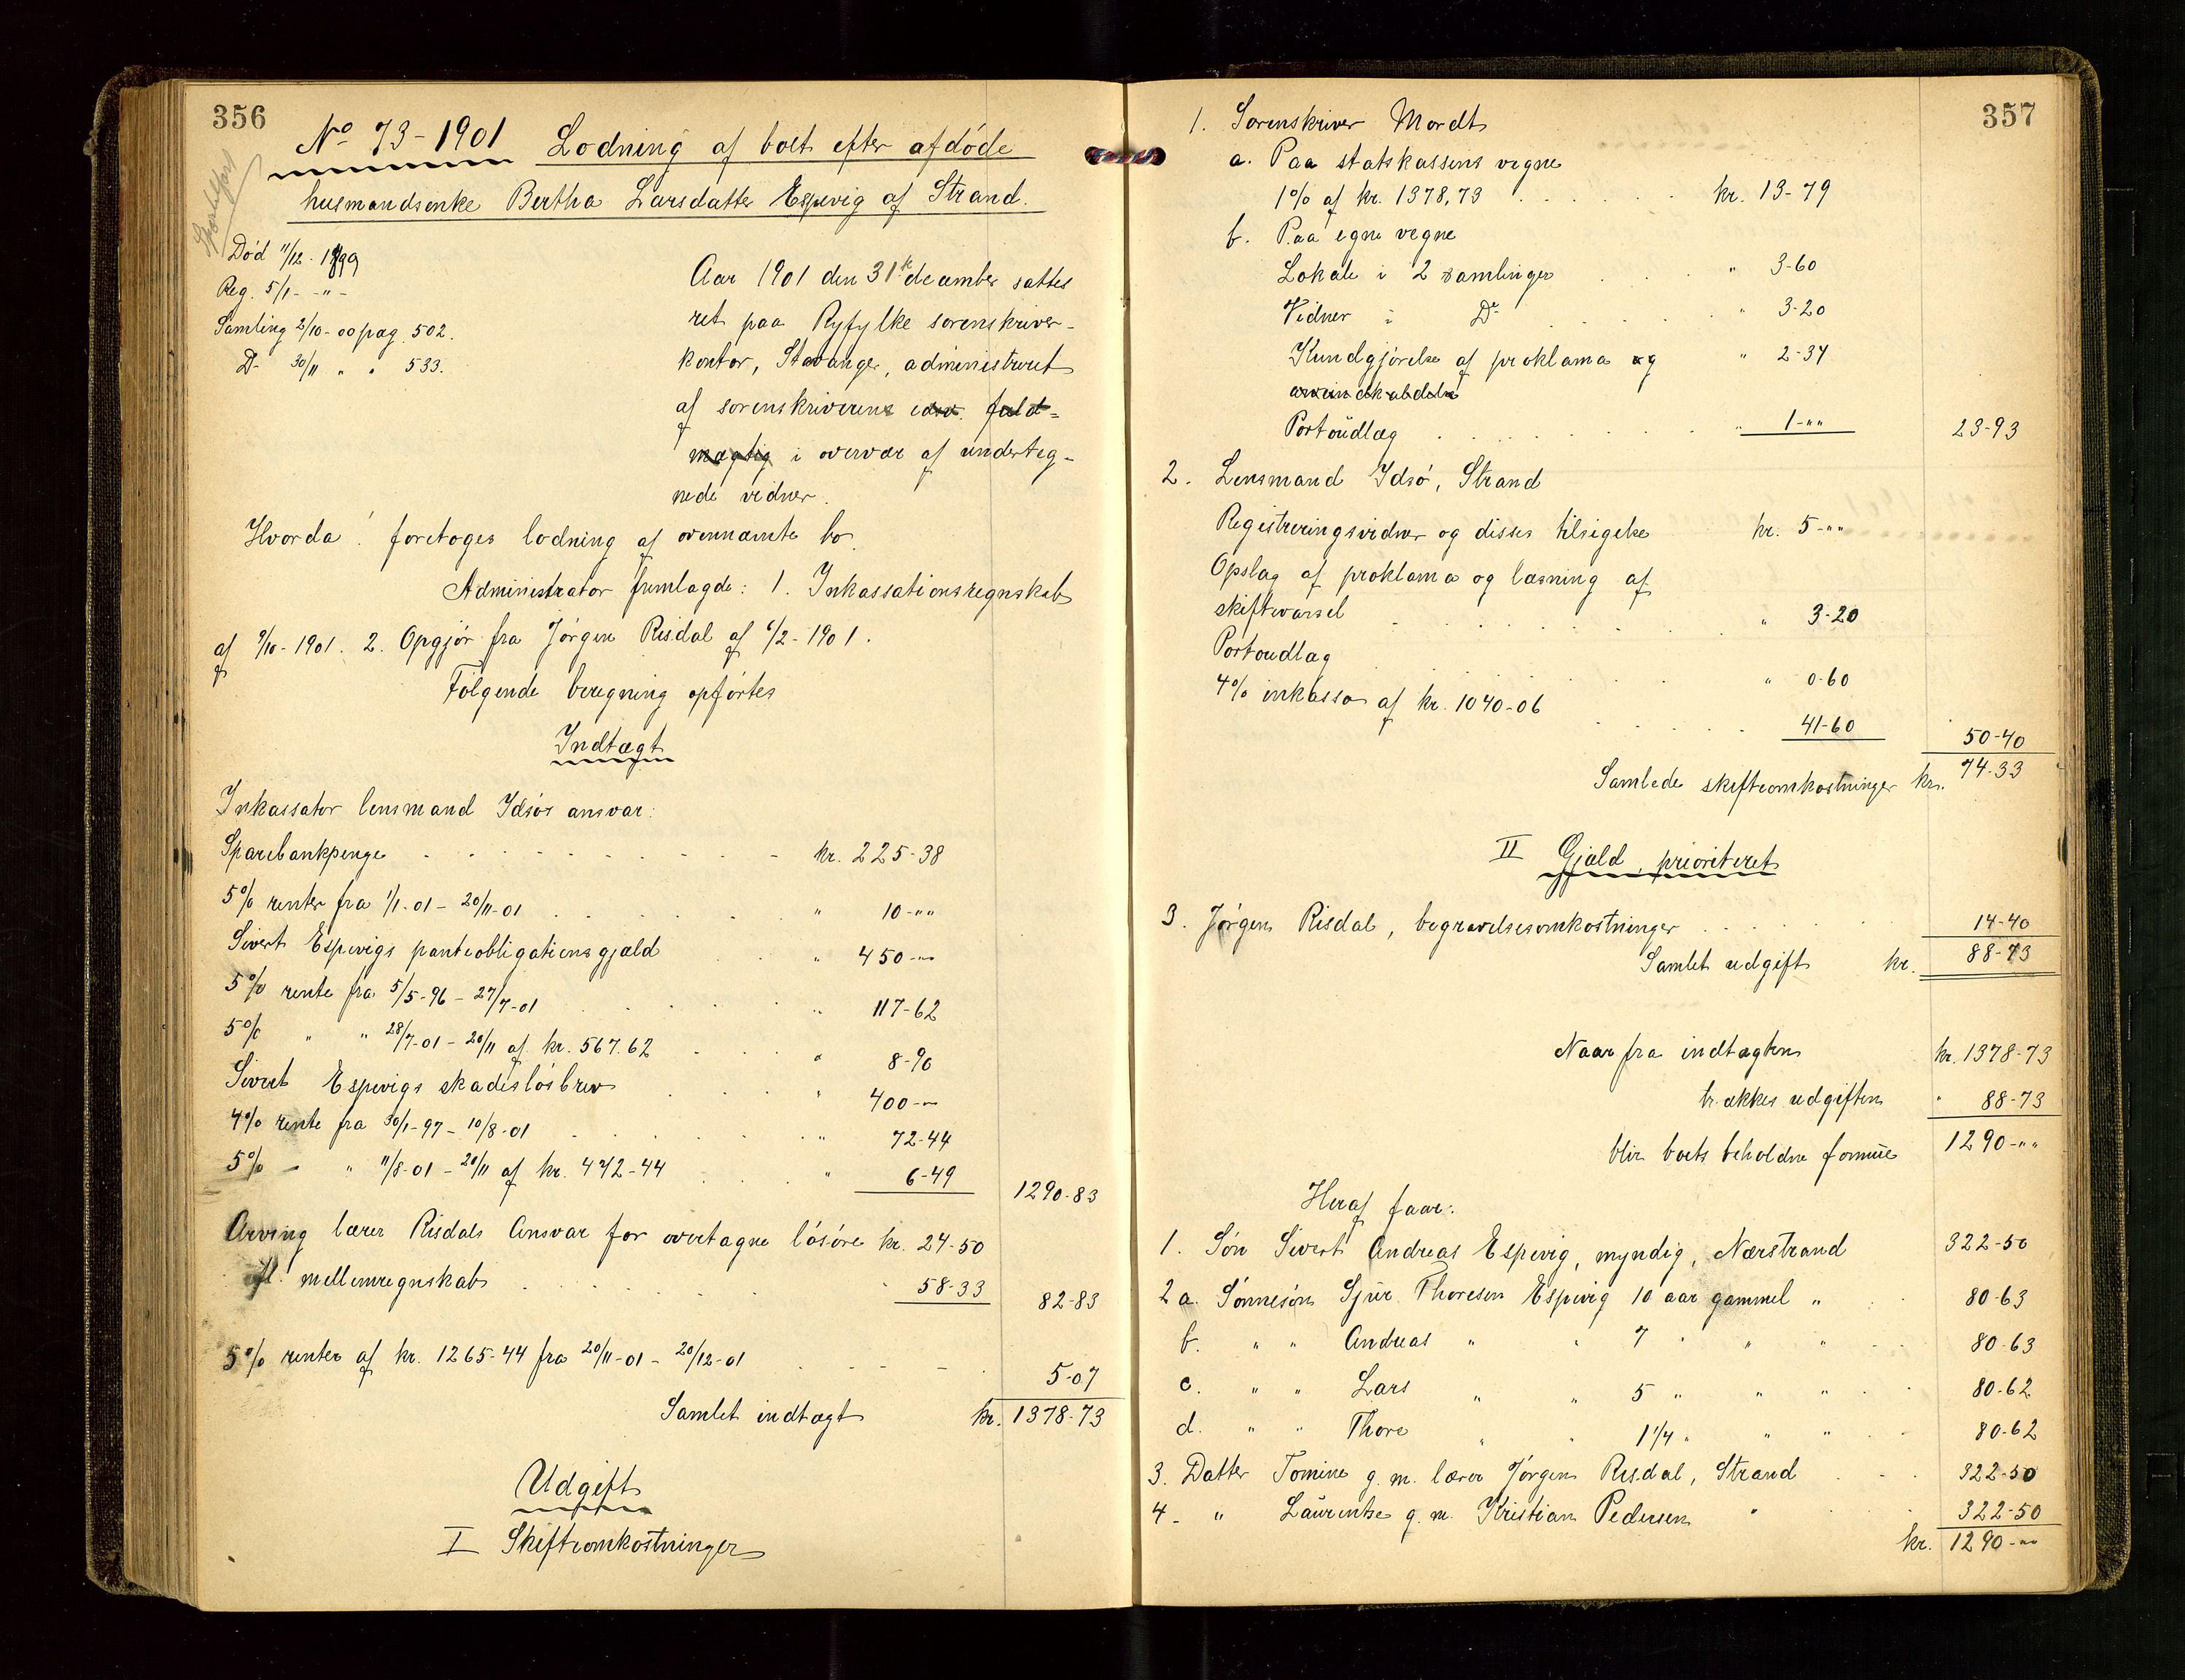 356
No 73-1901 Lodning af boet efter afdøde
husmandsenke Bertha Larsdatter Espevig af Strand.
Død 11/12. 1899
Reg. 5/1 - " -
Samling 2/10-00 pag. 502.
Do 30/11 " " 533.
Aar 1901 den 31te december sattes
ret paa Ryfylke sorenskriver-
kontor, Stavanger, administreret
af sorenskriveren edsv. fuld-
mægtig i overvær af underteg-
nede vidner.
Hvorda: foretoges lodning af ovennævnte bo.
Administrator fremlagde: 1. Inkassationsregnskab
af 9/10-1901. 2. Opgjør fra Jørgen Risdal af 6/2-1901.
Følgende beregning opførtes
Indtægt
Inkassator lensmand Idsøs ansvar:
Sparebankpenge kr. 225-38
5% renter fra 1/1-01 - 20/11-01 " 10-""
Sivert Espevigs panteobligationsgjæld " 450-""
5% rente fra 5/5-96 - 27/7-01 " 117-62
5% " " 28/7-01 - 20/11 af kr. 567.62 " 8-90
Sivert Espevigs skadesløsbrev " 400-""
4% rente fra 30/1-97 - 10/8-01 " 72-44
5% - " 11/8-01 - 20/11 af kr. 472-44 " 6-49 1290-83
Arving lærer Risdals Ansvar for overtagne løsøre kr. 24-50
fl. mellemregnskab 58-33 82-83
5% renter af kr. 1265-44 fra 20/11-01 - 20/12-01 5-07
Samlet indtægt kr. 1378-73
Udgift
I Skifteomkostninger
357
1. Sorenskriver Mordt
a. Paa statskassens vegne
1% af kr. 1378,73 kr. 13-79
b. Paa egne vegne
Lokale i 2 samlinger " 3-60
Vidner i Do " 3-20
Kundgjørelse af proklama og " 2-34
Portoudlæg " 1-"" 23-93
2. Lensmand Idsø, Strand
Registreringsvidner og disses tilsigelse kr. 5-""
Opslag af proklama og læsning af
skiftevarsel " 3-20
Portoudlæg " 0-60
4% inkasso af kr. 1040-06 41-60 50-40
Samlede skifteomkostninger kr. 74-33
II Gjæld, prioriteret
3. Jørgen Risdal, begravelsesomkostninger 14-40
Samlet udgift kr. 88-73
Naar fra indtægten kr. 1378-73
trækkes udgiften " 88-73
blir boets beholdne formue 1290-""
Heraf faar:
1. Søn Sivert Andreas Espevig, myndig, Nærstrand 322-50
2 a. Sønnesøn Sjur Thoresen Espevig 10 aar gammel " 80-63
b. " " Andreas " " 7 " " " 80-63
c. " " Lars " " 5 " " " 80-62
d. " " Thore " " 1 1/4 " " " 80-62
3. Datter Tomine g. m. lærer Jørgen Risdal, Strand 322-50
4 - " Laurentse g. m. Kristian Pedersen " 322-50
kr. 1290-""